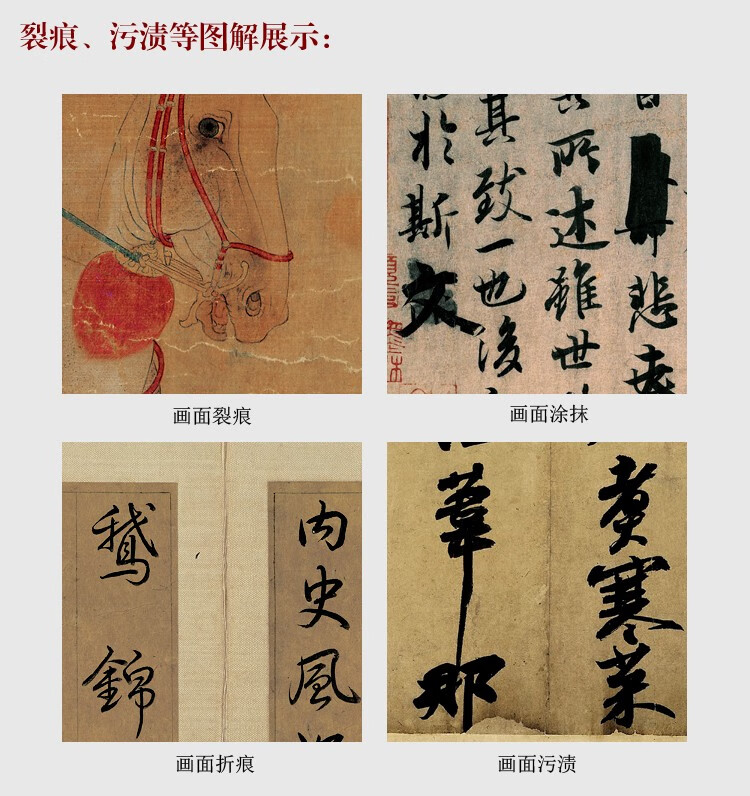 裂痕、污渍等图解展示：
於斯文
其致一也後
所述雖世
悲夫
画面裂痕
画面涂抹
鹅
錦
内史風
葦那
煮寒菜
画面折痕
画面污渍